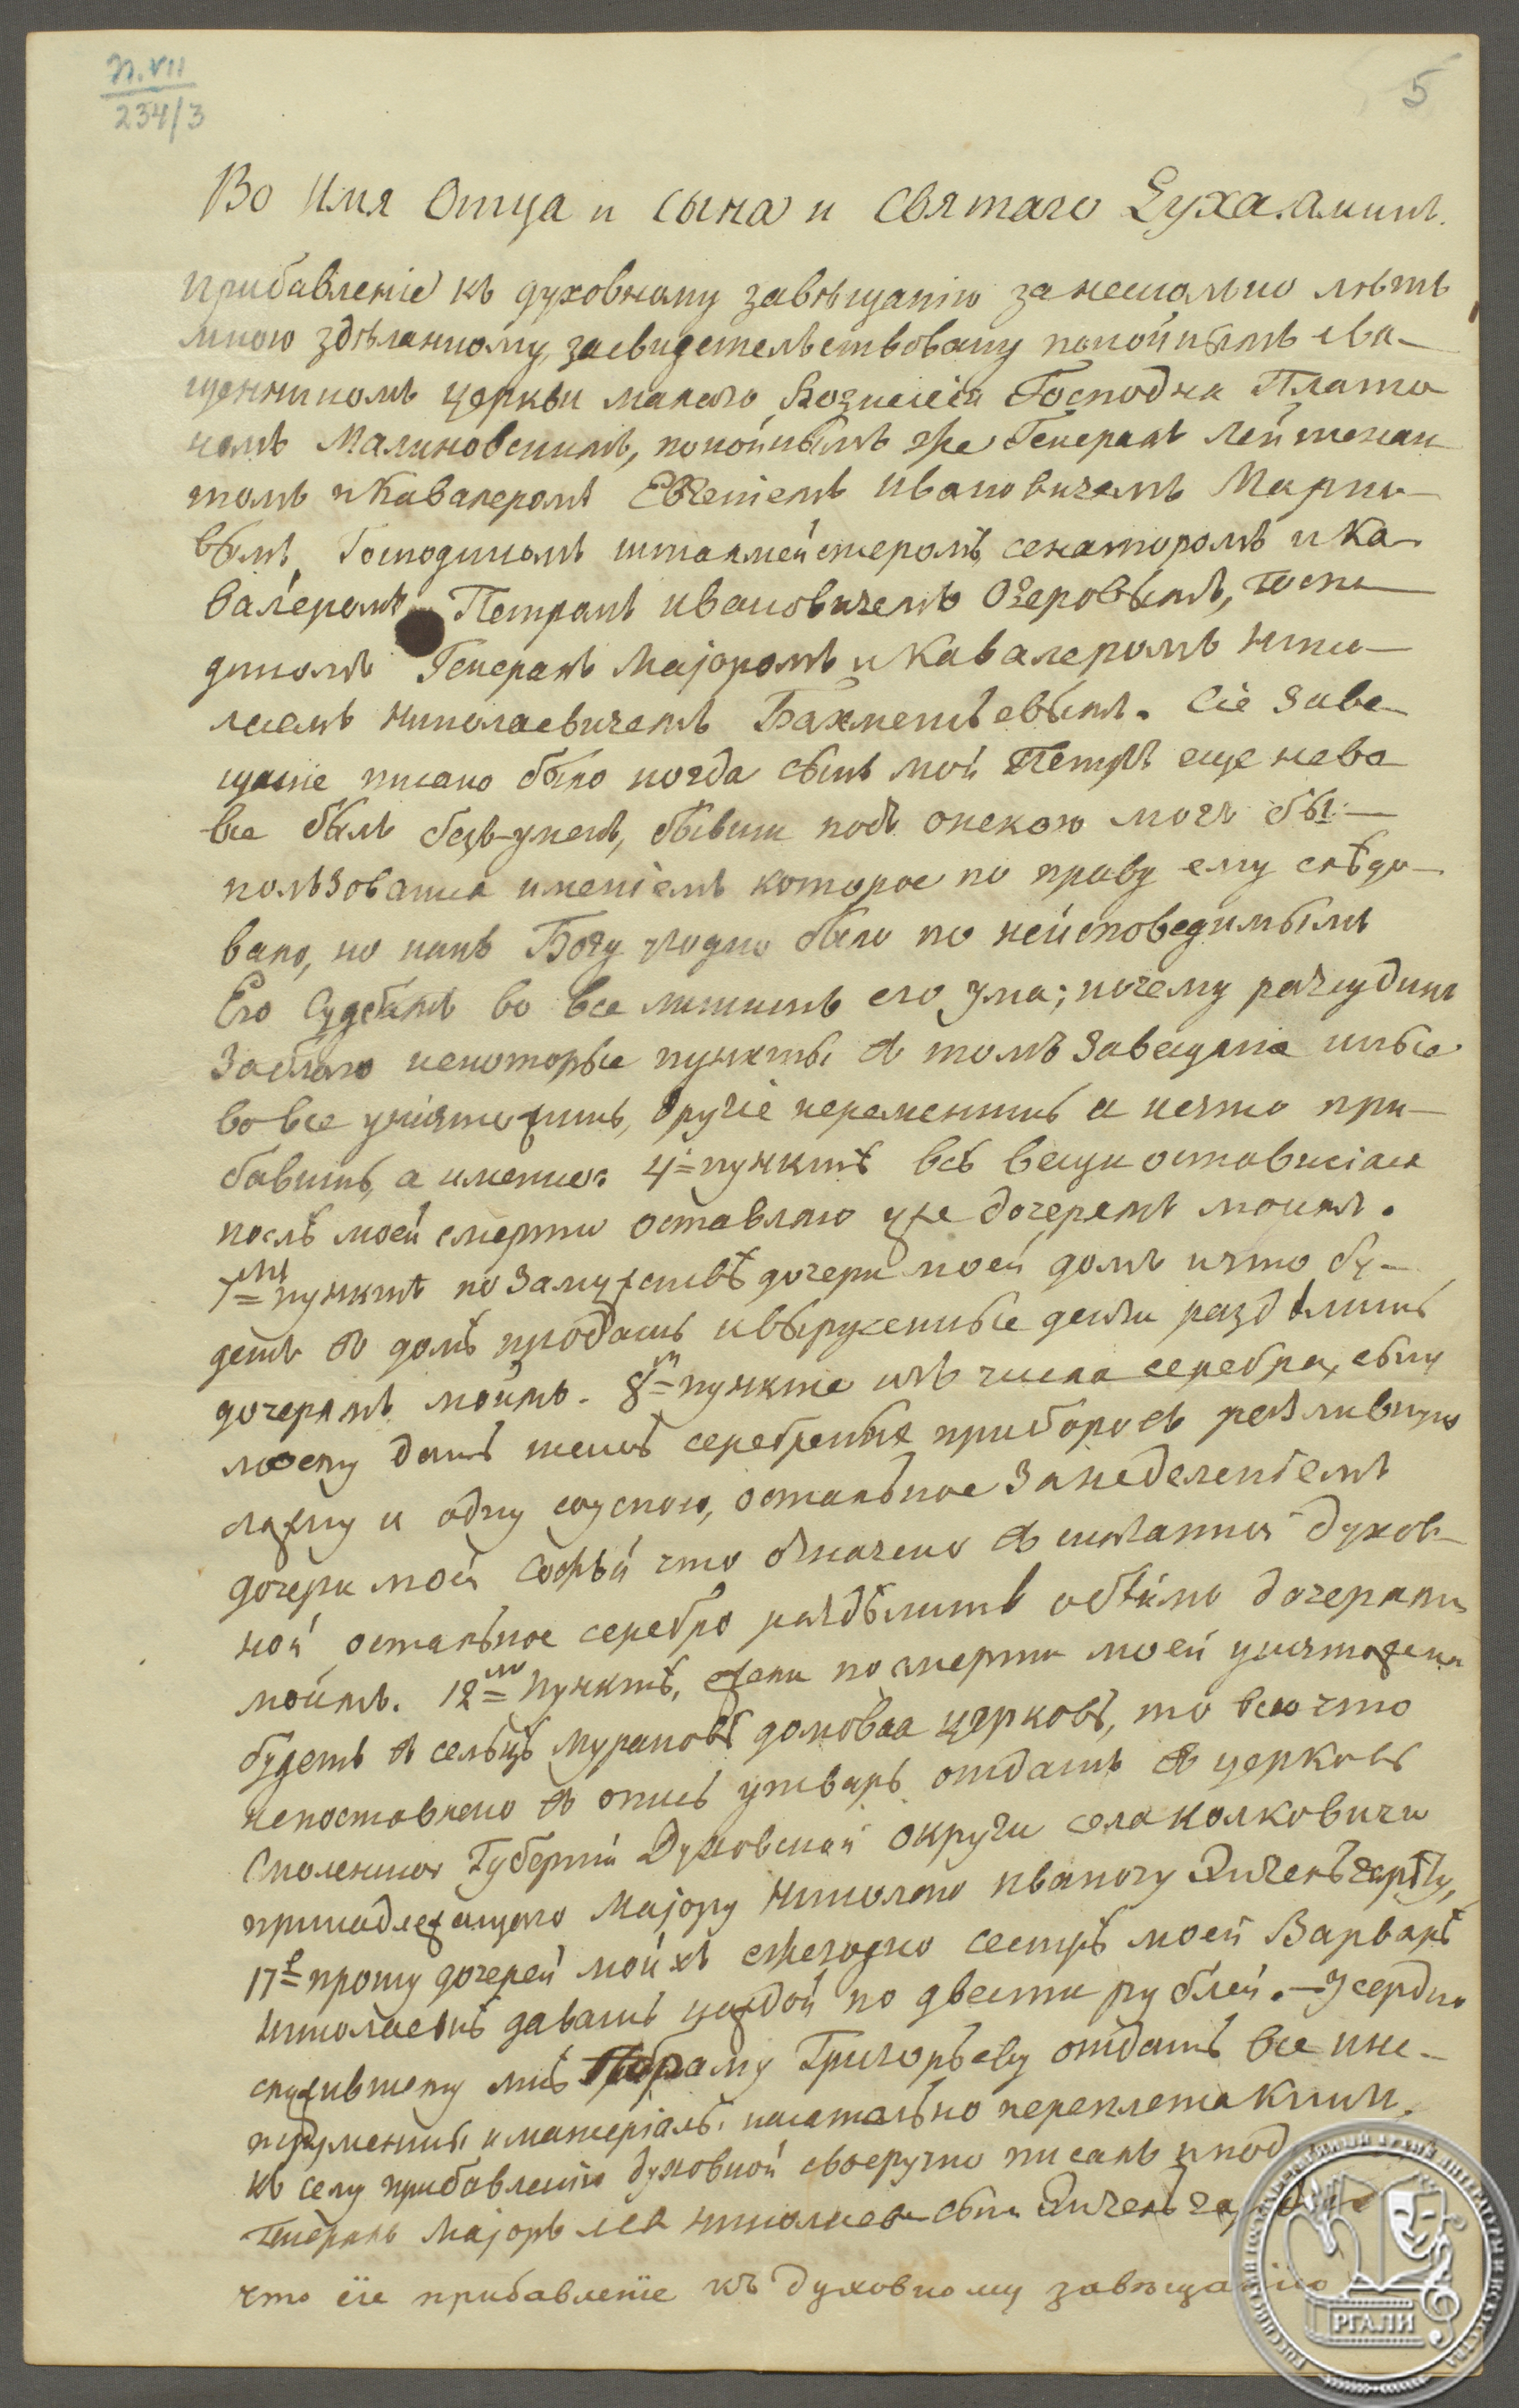 П. VII
234/3
5
Во Имя Отца и Сына и Святаго Духа. Аминь.
Прибавленіе къ духовному завѣщанію за несколько лѣтъ
мною здѣланному, засвидетельствовану покойнымъ свя-
щенникомъ церкви малаго Вознесенія Господня Плато
номъ Малиновскимъ, покойнымъ же Генералъ Лейтенан
томъ и Кавалеромъ Евгеніемъ Ивановичемъ Марко-
вымъ, Господиномъ шталмейстеромъ, сенаторомъ и Ка-
валеромъ Петромъ Ивановичемъ Озеровымъ, Госпо
диномъ Генералъ Маіоромъ и Кавалеромъ Нико-
лаемъ Николаевичемъ Бахметьевымъ. Сіе Заве-
щаніе писано было когда сынъ мой Петръ еще не во
все былъ безъ-уменъ, бывши подъ опекою могъ бы
пользоватся имѣніемъ которое по праву ему слѣдо-
вало, но какъ Богу угодно было по неисповедимымъ
Его Судбамъ во все лишить его ума; почему разсудилъ
За благо некоторые пункты въ томъ Завещаніе иные
во все уничтожить, другіе переменить а нечто при-
бавить, а именно: 4й пунктъ всѣ вещи оставшіяся
послѣ моей смерти оставляю уже дочерямъ моимъ.
7мъ пунктѣ по Замужствѣ дочери моей домъ и что бу-
детъ въ домѣ продать и вырученные деньги раздѣлить
дочерямъ моимъ. 8м пункте изъ числа серебра, сыну
моему дать шесть серебреныхъ приборовъ разливную
ложку и одну соусною, остальное За наделеніемъ
дочери моей Софьи что означено въ духов-
ной остальное серебро раздѣлить обѣимъ дочерямъ
моимъ. 12мъ пунктѣ, если по смерти моей уничтожена
будетъ въ сельцѣ Мурановѣ домовая церковь, то всю что
непоставлено въ опись утварь отдать въ церковь
Смоленской Губерніи Духовской округи села Колковичи
принадлежащаго Маіору Николаю Иванычу Энгельгардту,
17е прошу дочерей моихъ ежегодно сестрѣ моей Варварѣ
Николаевнѣ давать каждой по двести рублей. — Усердно
служившему мнѣ Григорьеву отдать все инс-
трументы и матеріалы касательно переплета книгъ.
Къ сему прибавленію духовной своеручно писалъ и под
Генералъ Маіоръ Левъ Николаевъ сынъ Энгельгардтъ
что сіе прибавленіе къ духовному завѣщанію
РГАЛИ